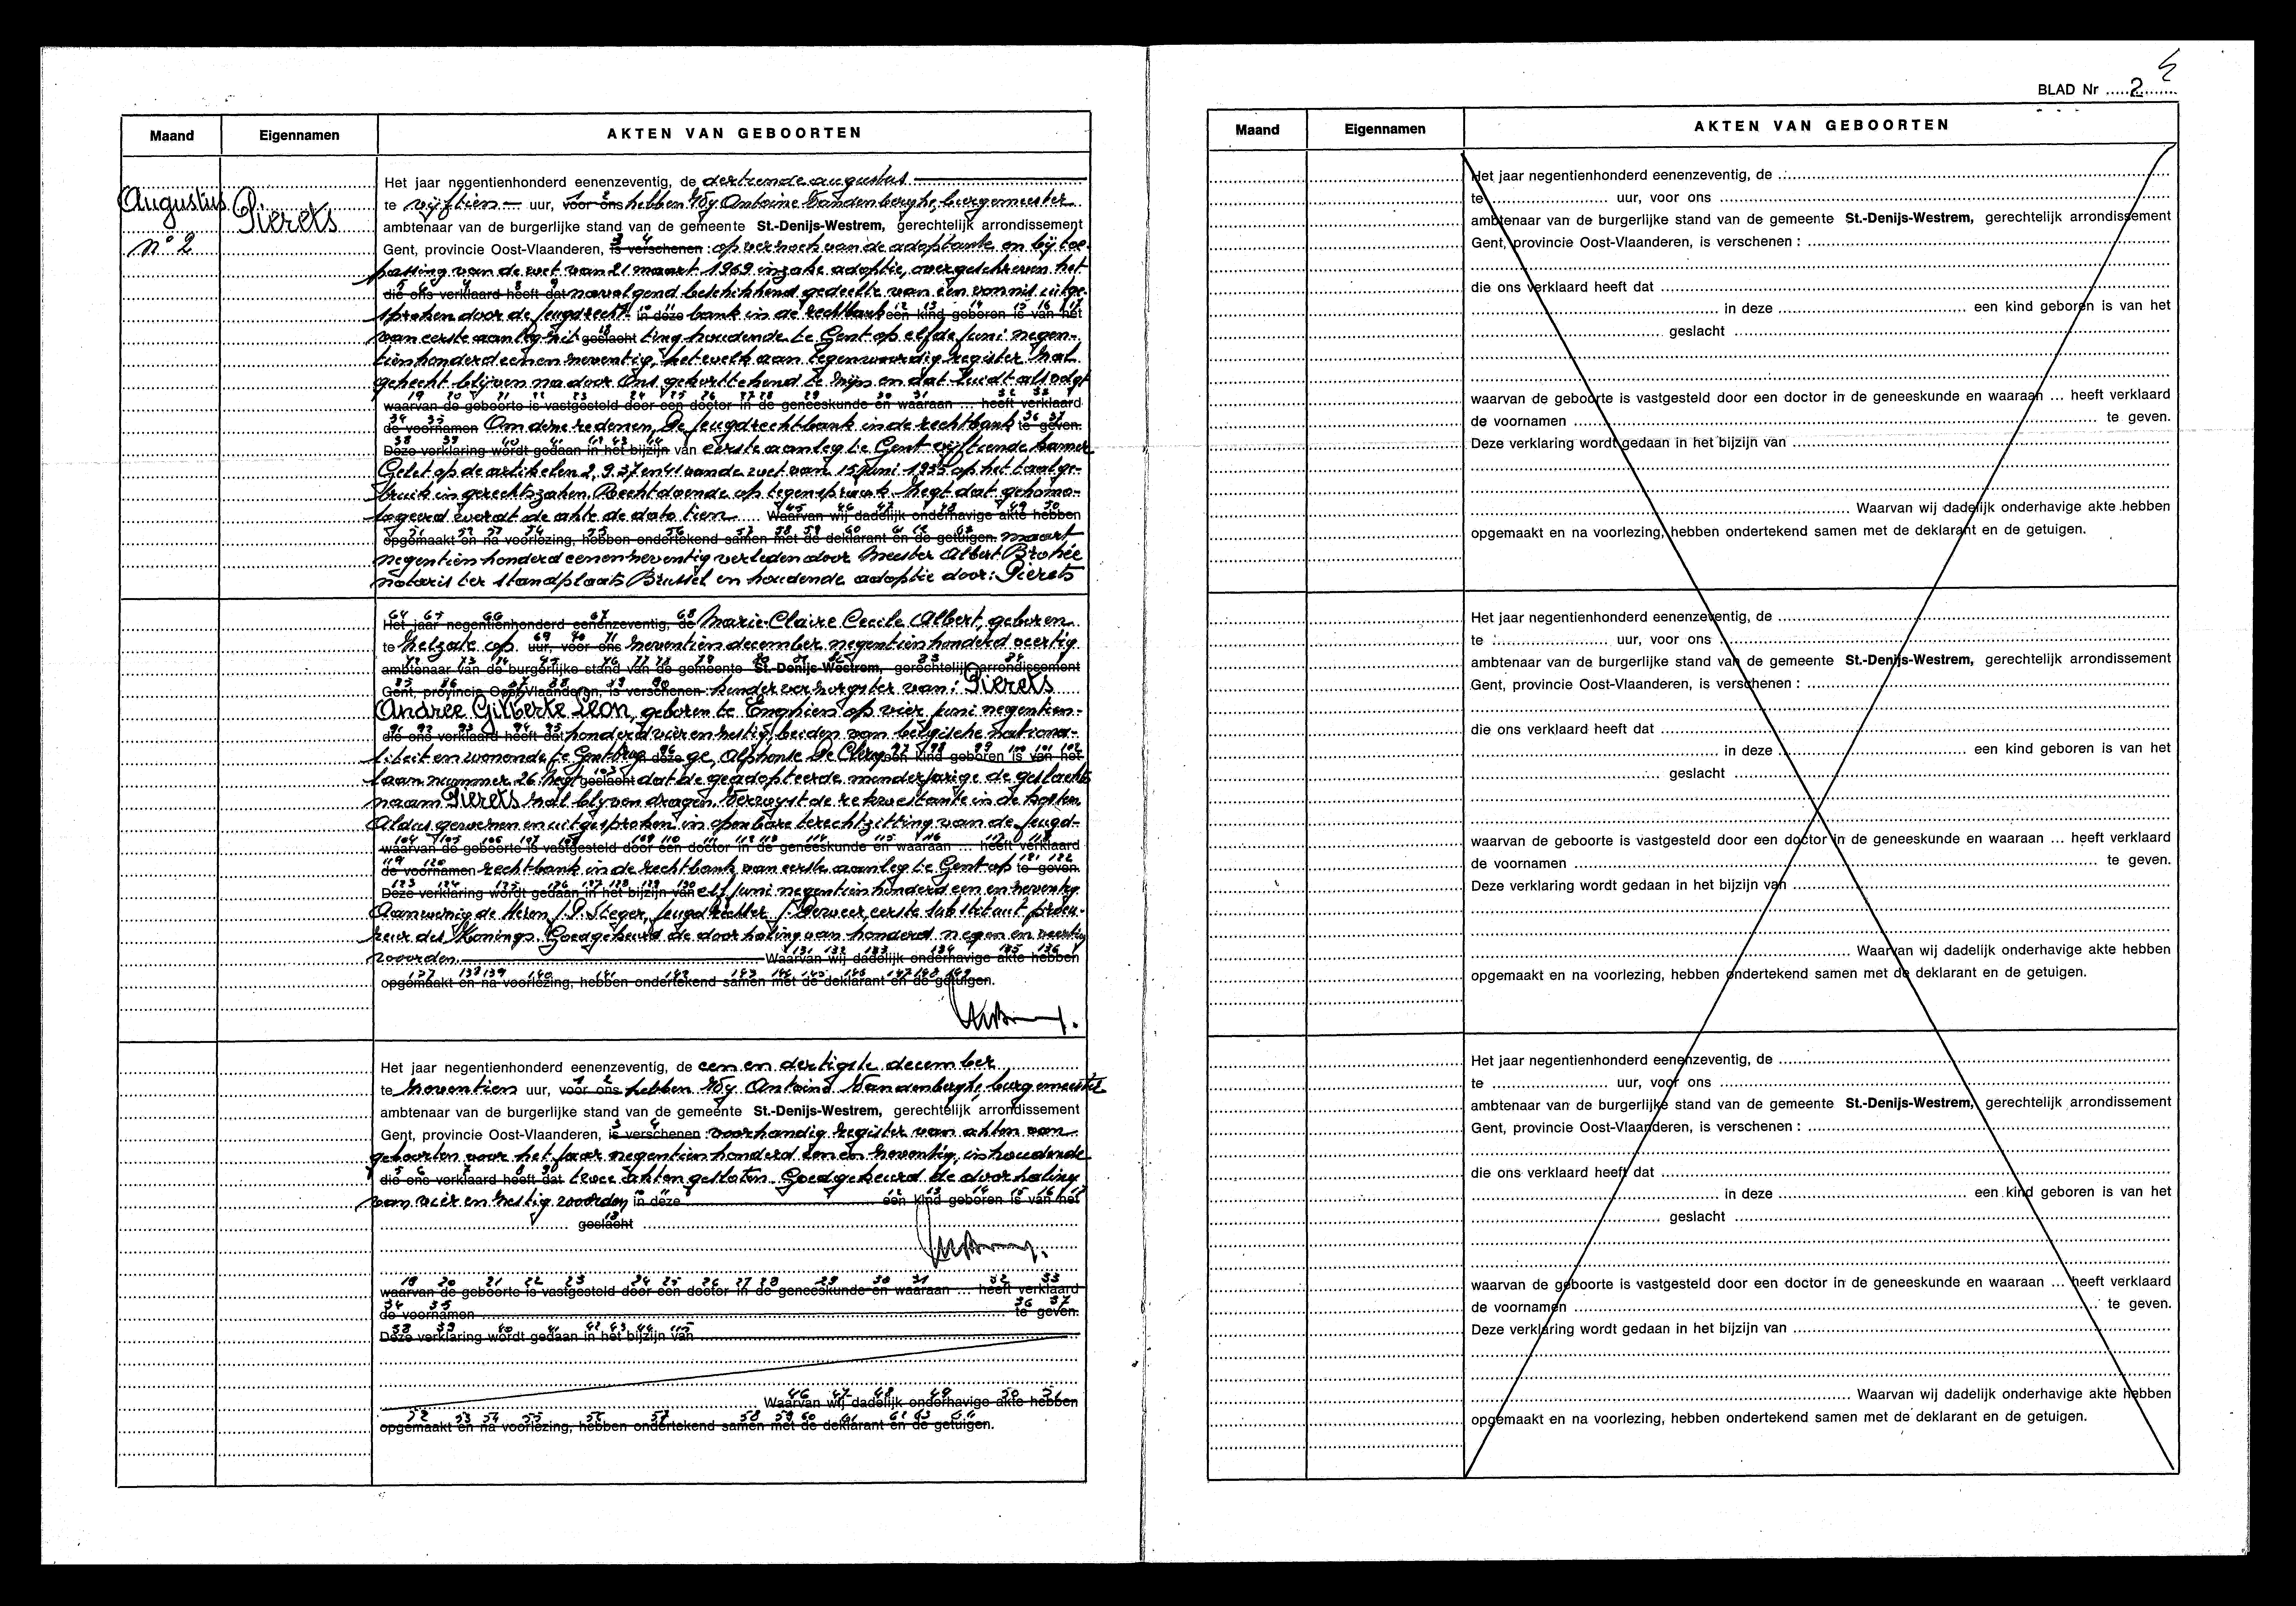 Maand Eigennamen AKTEN VAN GEBOORTEN
Augustus Pierets
n° 2
Het jaar negentienhonderd eenenzeventig, de dertiende augustus
te vijftien uur, voor ons hebben Wij Antoine Vandenberghe, burgemeester
ambtenaar van de burgerlijke stand van de gemeente St.-Denijs-Westrem, gerechtelijk arrondissement
Gent, provincie Oost-Vlaanderen, is verschenen : op verzoek van de adoptante en bij toe-
passing van de wet van 21 maart 1969 inzake adoptie, overgeschreven het
die ons verklaard heeft dat navolgend beschikkend gedeelte van een vonnis uitge-
sproken door de Jeugdrecht in deze bank in de rechtbank een kind geboren is van het
van eerste aanleg zit geslacht ting houdende te Gent op elfde Juni negen-
tienhonderd eenenzeventig, hetwelk aan tegenwoordig register zal
gehecht blijven na door Ons gekorttekend te zijn en dat luidt als volgt
waarvan de geboorte is vastgesteld door een doctor in de geneeskunde en waaraan ... heeft verklaard
de voornamen Om deze redenen, De Jeugdrechtbank in de rechtbank te geven.
Deze verklaring wordt gedaan in het bijzijn van eerste aanleg te Gent vijftiende kamer
Gelet op de artikelen 2, 9, 37 en 41 van de wet van 15 Juni 1935 op het taalge-
bruik in gerechtszaken, Recht doende op tegenspraak Zegt dat gehomo-
logeerd wordt de akte de dato tien Waarvan wij dadelijk onderhavige akte hebben
opgemaakt en na voorlezing, hebben ondertekend samen met de deklarant en de getuigen. maart
negentienhonderd eenenzeventig verleden door Meester Albert Brohée
notaris ter standplaats Brussel en houdende adoptie door: Pierets
Het jaar negentienhonderd eenenzeventig, de Marie-Claire Cecile Albert, geboren
te Zelzate op uur, voor ons zeventien december negentienhonderd veertig
ambtenaar van de burgerlijke stand van de gemeente St.-Denijs-Westrem, gerechtelijk arrondissement
Gent, provincie Oost-Vlaanderen, is verschenen : van: Pierets
Andrée Gilberte Leon, geboren te Enghien op vier juni negentien-
die ons verklaard heeft dat honderd vierenzestig, beiden van belgische nationa-
liteit en wonende te Gentbrug in deze ge, Alphonse De Clerq een kind geboren is van het
laan nummer 26 Zegt geslacht dat de geadopteerde minderjarige de geslachts
naam Pierets zal blijven dragen. Verwijst de rekwestrante in de kosten.
Aldus gewezen en uitgesproken in openbare terechtzitting van de Jeugd-
waarvan de geboorte is vastgesteld door een doctor in de geneeskunde en waaraan ... heeft verklaard
de voornamen rechtbank in de rechtbank van eerste aanleg te Gent op te geven.
Deze verklaring wordt gedaan in het bijzijn van elf Juni negentienhonderd een en zeventig
Aanwezig de Heren J.P. Steger, Jeugdrechter J. eerste substituut procu-
reur des Konings. Goedgekeurd de doorhaling van honderd negen en veertig
woorden. Waarvan wij dadelijk onderhavige akte hebben
opgemaakt en na voorlezing, hebben ondertekend samen met de deklarant en de getuigen.
Het jaar negentienhonderd eenenzeventig, de een en dertigste december
te zeventien uur, voor ons hebben Wij Antoine Vandenberghe, burgemeester
ambtenaar van de burgerlijke stand van de gemeente St.-Denijs-Westrem, gerechtelijk arrondissement
Gent, provincie Oost-Vlaanderen, is verschenen : voorhandig register van akten van
geboorten voor het jaar negentienhonderd een en zeventig, inhoudende
die ons verklaard heeft dat twee akten gesloten. Goedgekeurd de doorhaling
van vier en zestig woorden in deze een kind geboren is van het
geslacht
waarvan de geboorte is vastgesteld door een doctor in de geneeskunde en waaraan ... heeft verklaard
de voornamen te geven.
Deze verklaring wordt gedaan in het bijzijn van
Waarvan wij dadelijk onderhavige akte hebben
opgemaakt en na voorlezing, hebben ondertekend samen met de deklarant en de getuigen.
BLAD Nr 2
Maand Eigennamen AKTEN VAN GEBOORTEN
Het jaar negentienhonderd eenenzeventig, de
te uur, voor ons
ambtenaar van de burgerlijke stand van de gemeente St.-Denijs-Westrem, gerechtelijk arrondissement
Gent, provincie Oost-Vlaanderen, is verschenen :
die ons verklaard heeft dat
in deze een kind geboren is van het
geslacht
waarvan de geboorte is vastgesteld door een doctor in de geneeskunde en waaraan ... heeft verklaard
de voornamen te geven.
Deze verklaring wordt gedaan in het bijzijn van
Waarvan wij dadelijk onderhavige akte hebben
opgemaakt en na voorlezing, hebben ondertekend samen met de deklarant en de getuigen.
Het jaar negentienhonderd eenenzeventig, de
te uur, voor ons
ambtenaar van de burgerlijke stand van de gemeente St.-Denijs-Westrem, gerechtelijk arrondissement
Gent, provincie Oost-Vlaanderen, is verschenen :
die ons verklaard heeft dat
in deze een kind geboren is van het
geslacht
waarvan de geboorte is vastgesteld door een doctor in de geneeskunde en waaraan ... heeft verklaard
de voornamen te geven.
Deze verklaring wordt gedaan in het bijzijn van
Waarvan wij dadelijk onderhavige akte hebben
opgemaakt en na voorlezing, hebben ondertekend samen met de deklarant en de getuigen.
Het jaar negentienhonderd eenenzeventig, de
te uur, voor ons
ambtenaar van de burgerlijke stand van de gemeente St.-Denijs-Westrem, gerechtelijk arrondissement
Gent, provincie Oost-Vlaanderen, is verschenen :
die ons verklaard heeft dat
in deze een kind geboren is van het
geslacht
waarvan de geboorte is vastgesteld door een doctor in de geneeskunde en waaraan ... heeft verklaard
de voornamen te geven.
Deze verklaring wordt gedaan in het bijzijn van
Waarvan wij dadelijk onderhavige akte hebben
opgemaakt en na voorlezing, hebben ondertekend samen met de deklarant en de getuigen.